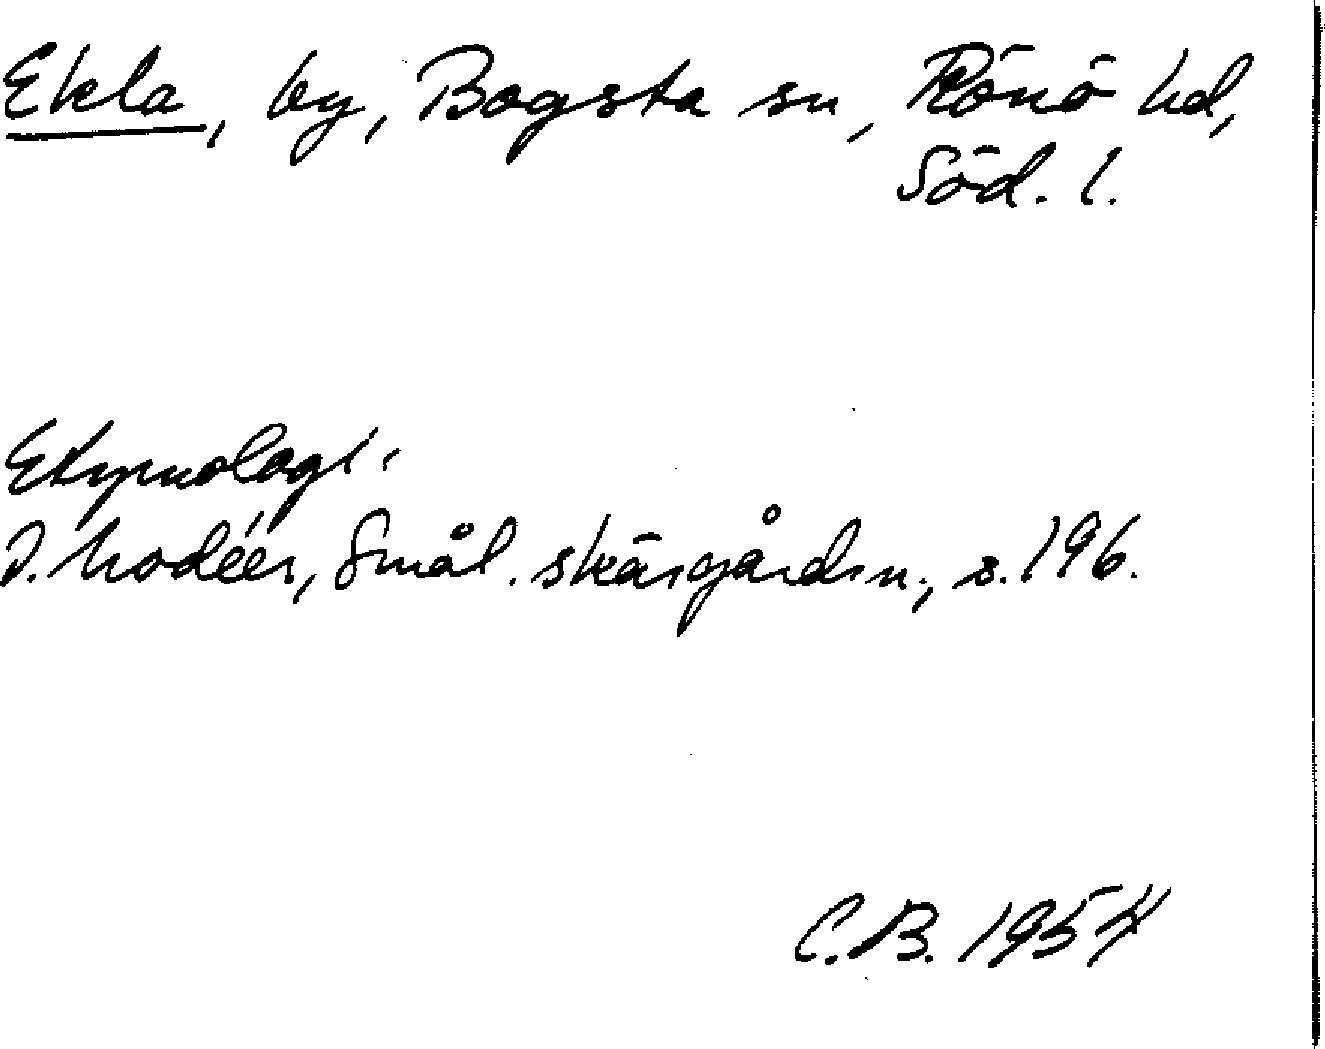 Ekla, by, Bogsta sn, Rönö hd,
Söd. l.
Etymologi.
I. Modéer, Smål. skärgårdsn., s. 196.
C.B. 1954